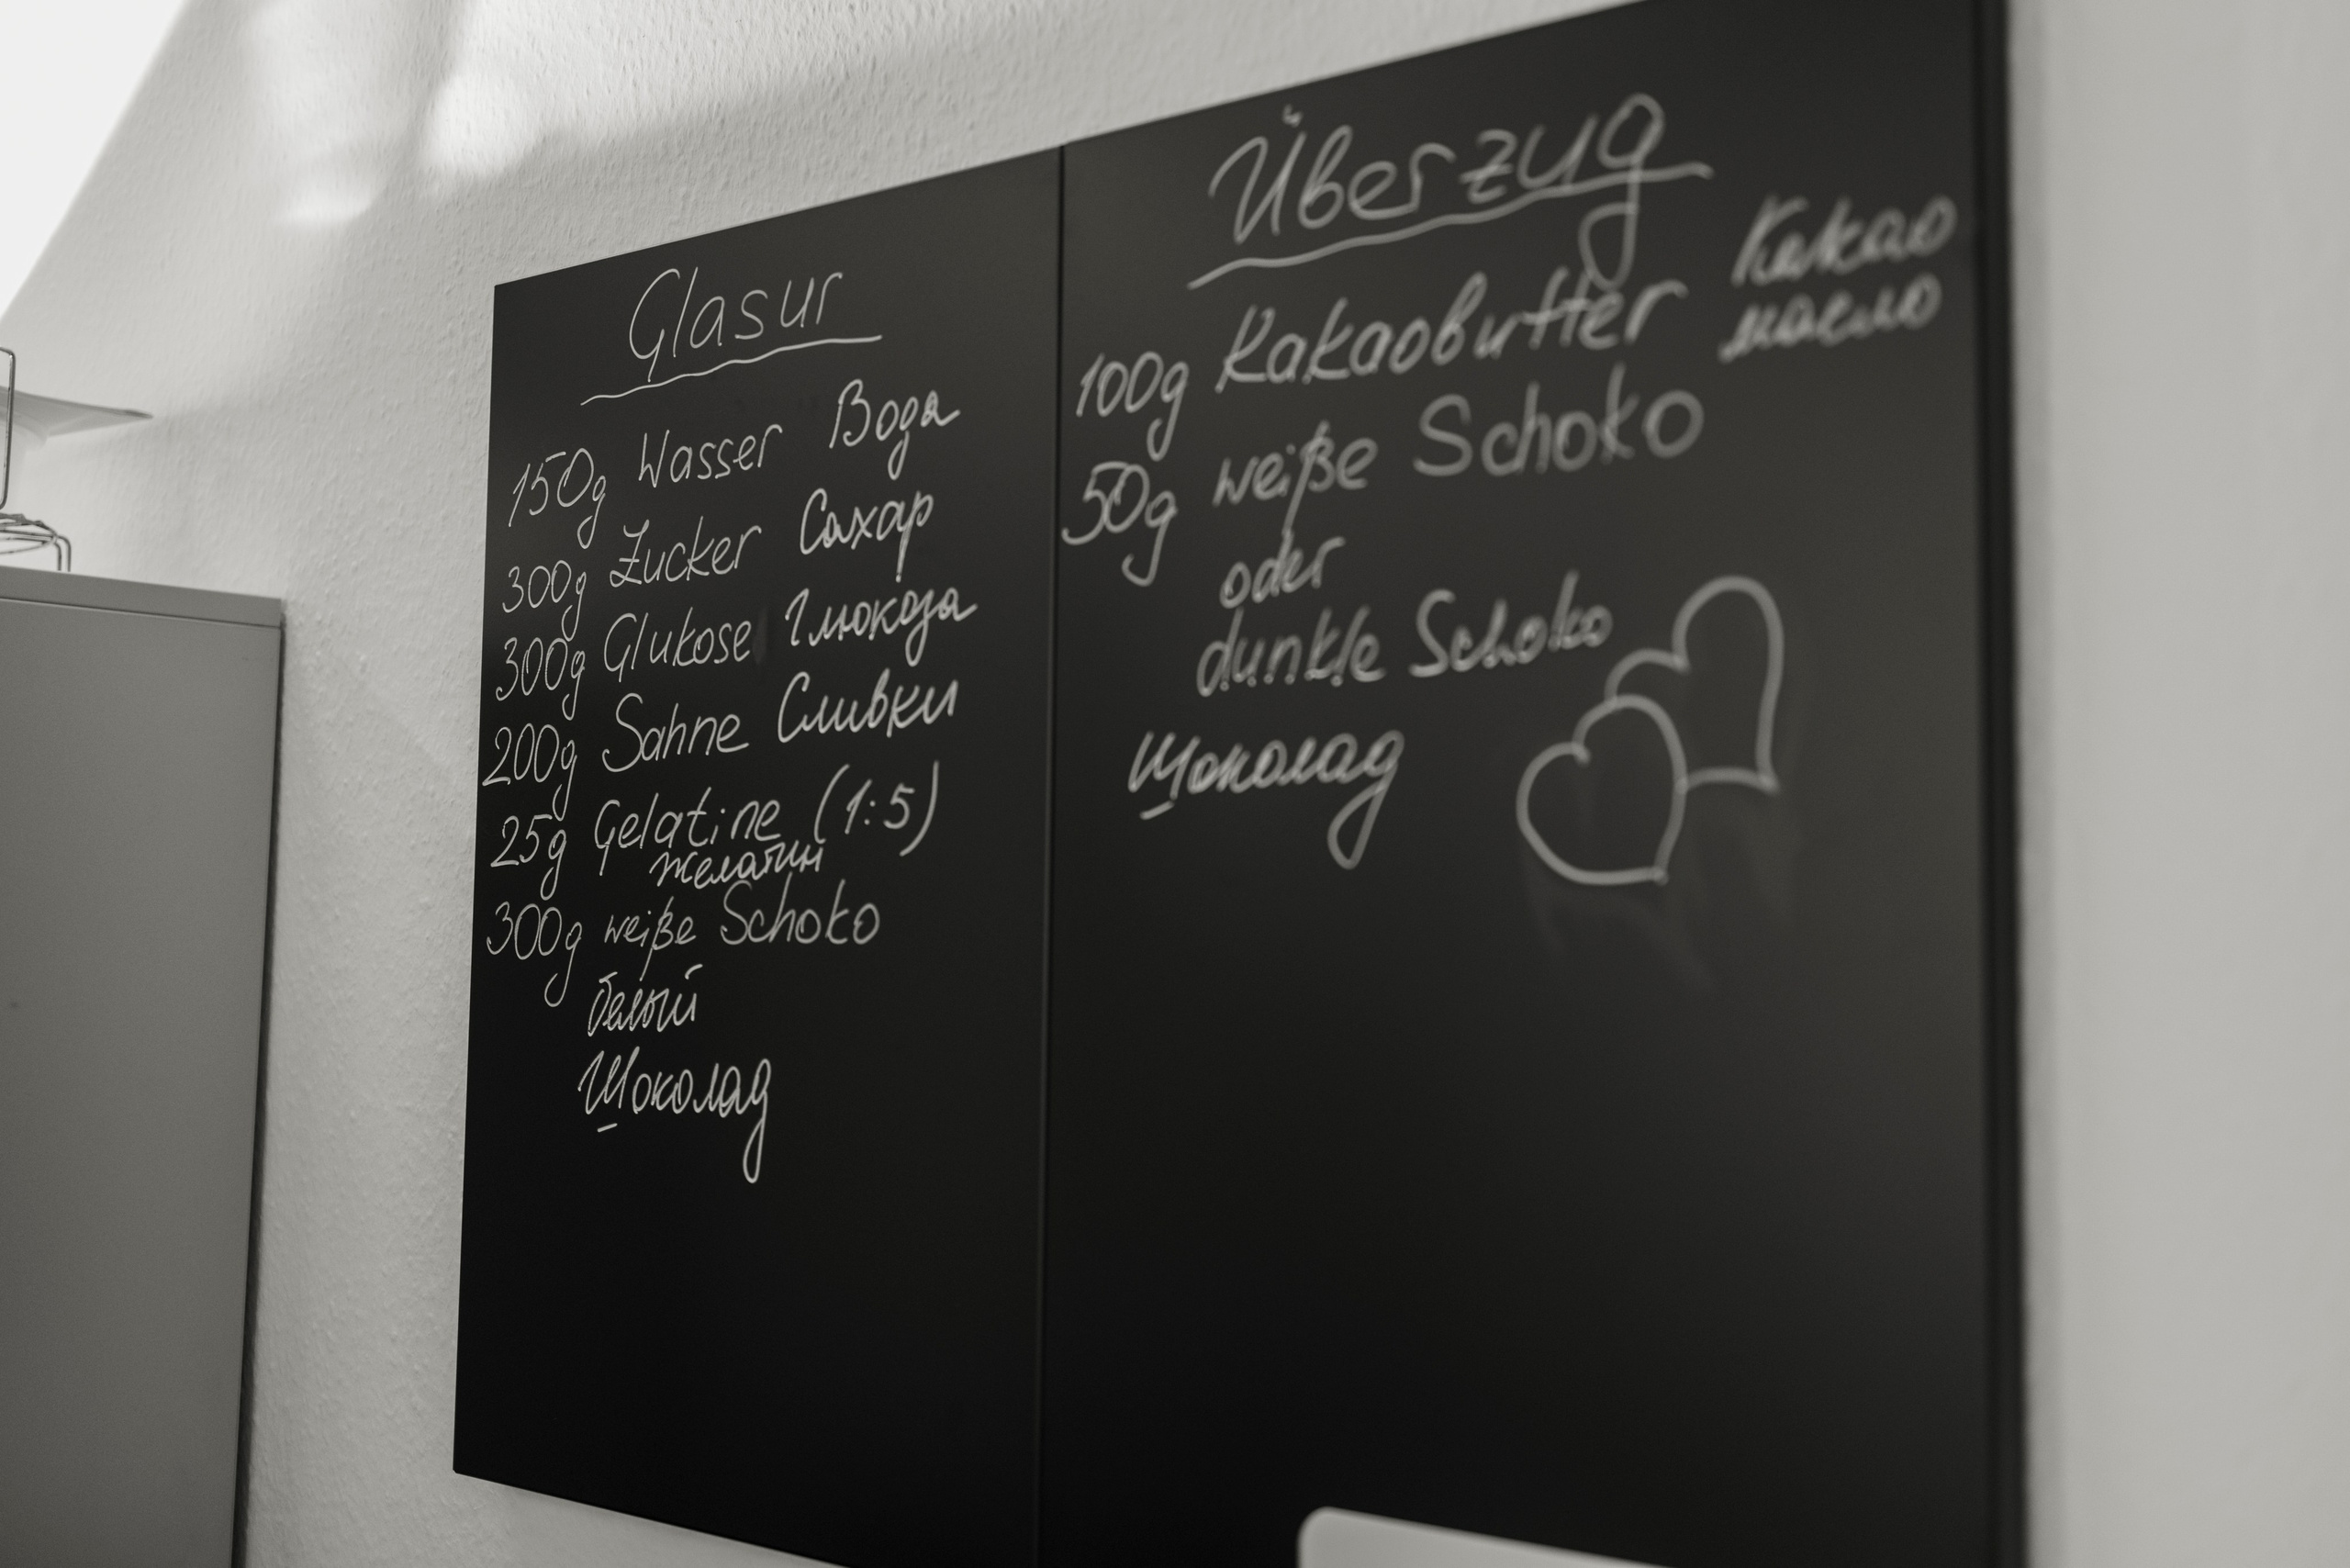 Glasur
150g Wasser Вода
300g Zucker Сахар
300g Glukose Глюкоза
200g Sahne Сливки
25g Gelatine (1:5)
желатин
300g weiße Schoko
белый
Шоколад
Überzug
100g Kakaobutter Какао
масло
50g weiße Schoko
oder
dunkle Schoko
Шоколад